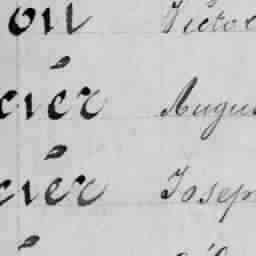 on Victor
cier Augu
cier Josep